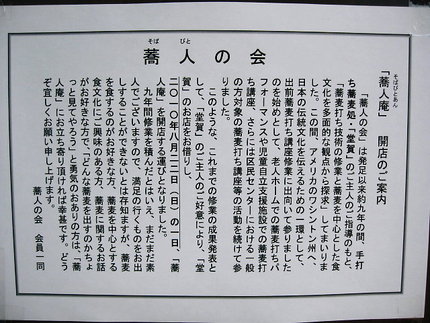 そば びと
蕎人の会
そばびとあん
「蕎人庵」 開店のご案内
「蕎人の会」は発足以来約九年の間、手打
ち蕎麦処・「堂賀」のご主人のご指導のもと、
「蕎麦打ち技術の修業と蕎麦を中心とした食
文化を多面的な観点から探求」してまいりま
した。この間、アメリカのワシントン州へ、
日本の伝統文化を伝えるための一環として、
出前蕎麦打ち講座修業に出向いて参りました
のを始めとして、老人ホームでの蕎麦打ちパ
フォーマンスや児童自立支援施設での蕎麦打
ち講座、さらには区民センターにおける一般
の方対象の蕎麦打ち講座等の活動を続けて参
りました。
このような、これまでの修業の成果発表と
して、「堂賀」のご主人のご好意により、「堂
賀」のお店をお借りし、
二〇一〇年八月二二日(日)の一日、「蕎
人庵」を開店する運びとなりました。
九年間修業を積んだとはいえ、まだまだ素
人でございますので、満足の行くものをお出
しすることができないとは存知ますが、蕎麦
を食するのがお好きな方、蕎麦を中心とする
食文化にご興味のある方、蕎麦に関するお話
がお好きな方で、「どんな蕎麦を出すのかちょ
っと見てやろう」と勇気のおありの方は、「蕎
人庵」にお立ち寄り頂ければ幸甚です。どう
ぞ宜しくお願い申し上げます。
蕎人の会 会員一同